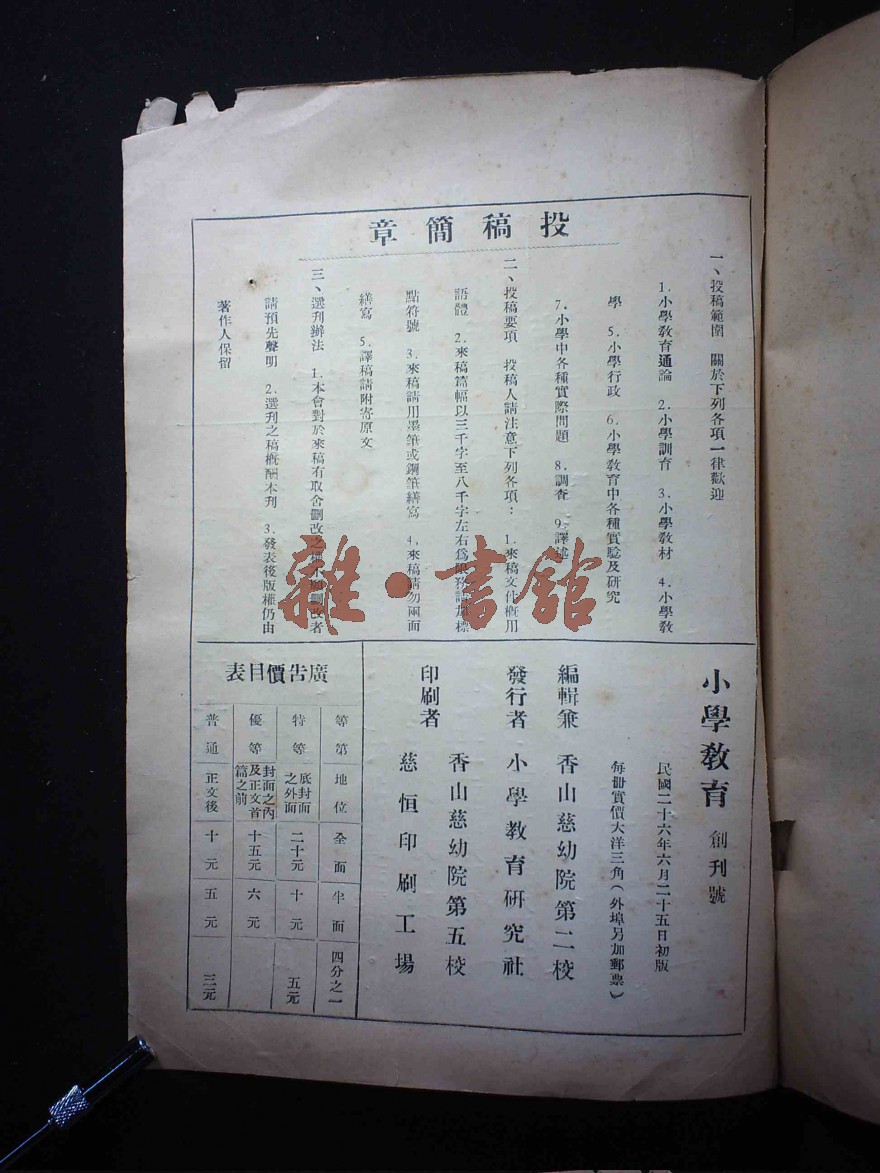 投稿簡章
一、投稿範圍　關於下列各項一律歡迎
1.小學教育通論　2.小學訓育　3.小學教材　4.小學教
學　5.小學行政　6.小學教育中各種實驗及研究
7.小學中各種實際問題　8.調查　9.譯述
二、投稿要項　投稿人請注意下列各項：　1.來稿文件槪用
語體　2.來稿篇幅以三千字至八千字左右爲限　標
點符號　3.來稿請用墨筆或鋼筆繕寫　4.來稿請勿兩面
繕寫　5.譯稿請附寄原文
三、選刊辦法　1.本會對於來稿有取舍刪改之權不願刪改者
請預先聲明　2.選刊之稿槪酬本刊　3.發表後版權仍由
著作人保留
小學教育　創刊號
民國二十六年六月二十五日初版
每冊實價大洋三角（外埠另加郵票）
編輯兼　香山慈幼院第二校
發行者　小學教育研究社
香山慈幼院第五校
印刷者　慈恒印刷工場
廣告價目表
等第　地位　全面　半面　四分之一
特等　底封面之外面　二十元　十元　五元
優等　封面之內及正文首篇之前　十五元　六元
普通　正文後　十元　五元　三元
雜·書館